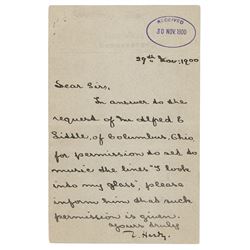 RECEIVED
30 NOV. 1900
29th Nov: 1900
Dear Sirs,
In answer to the
request of Mr Alfred E
Little, of Columbus, Ohio,
for permission to set to
music the lines "I look
into my glass", please
inform him that such
permission is given.
Yours truly
T. Hardy.